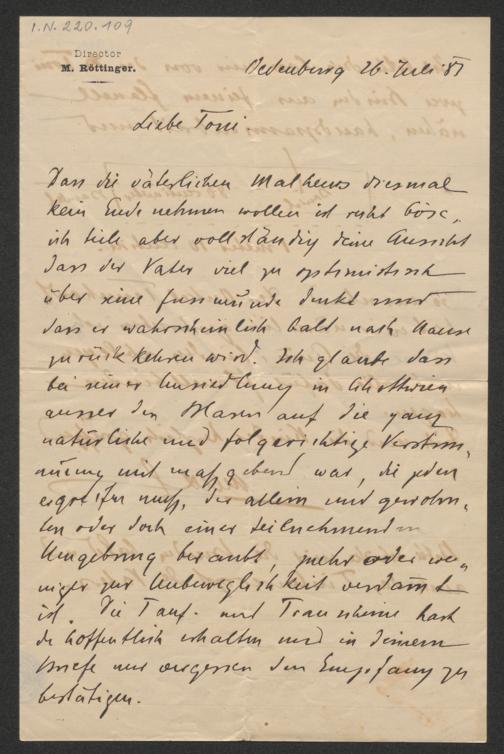 I.N. 220.109
Director
M. Röttinger.
Oedenburg 26. Juli 87
Liebe Toni
Dass die väterlichen Malheurs diesmal
kein Ende nehmen wollen ist recht böse,
ich teile aber vollständig deine Ansicht
dass der Vater viel zu optimistisch
über seine Fusswunde denkt und
dass er wahrscheinlich bald nach Hause
zurückkehren wird. Ich glaube dass
bei seiner Umsiedlung in
ausser den Masern auf die ganz
natürliche und folgerichtige Verstim-
mung mit massgebend war, die jeden
ergreifen muss, der allein und gewohn-
ten oder doch einer teilnehmenden
Umgebung beraubt, mehr oder we-
niger zur Unbeweglichkeit verdammt
ist. Die Tauf- und Trauscheine hast
du hoffentlich erhalten und in deinem
Briefe nur vergessen den Empfang zu
bestätigen.